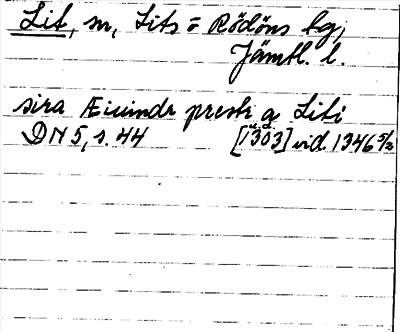 Lit, sn, Lits o Rödöns tg,
Jämtl. l.
sira Æiuindr prestr a Liti
DN 5, s. 44 [1303] vid. 1346 5/2